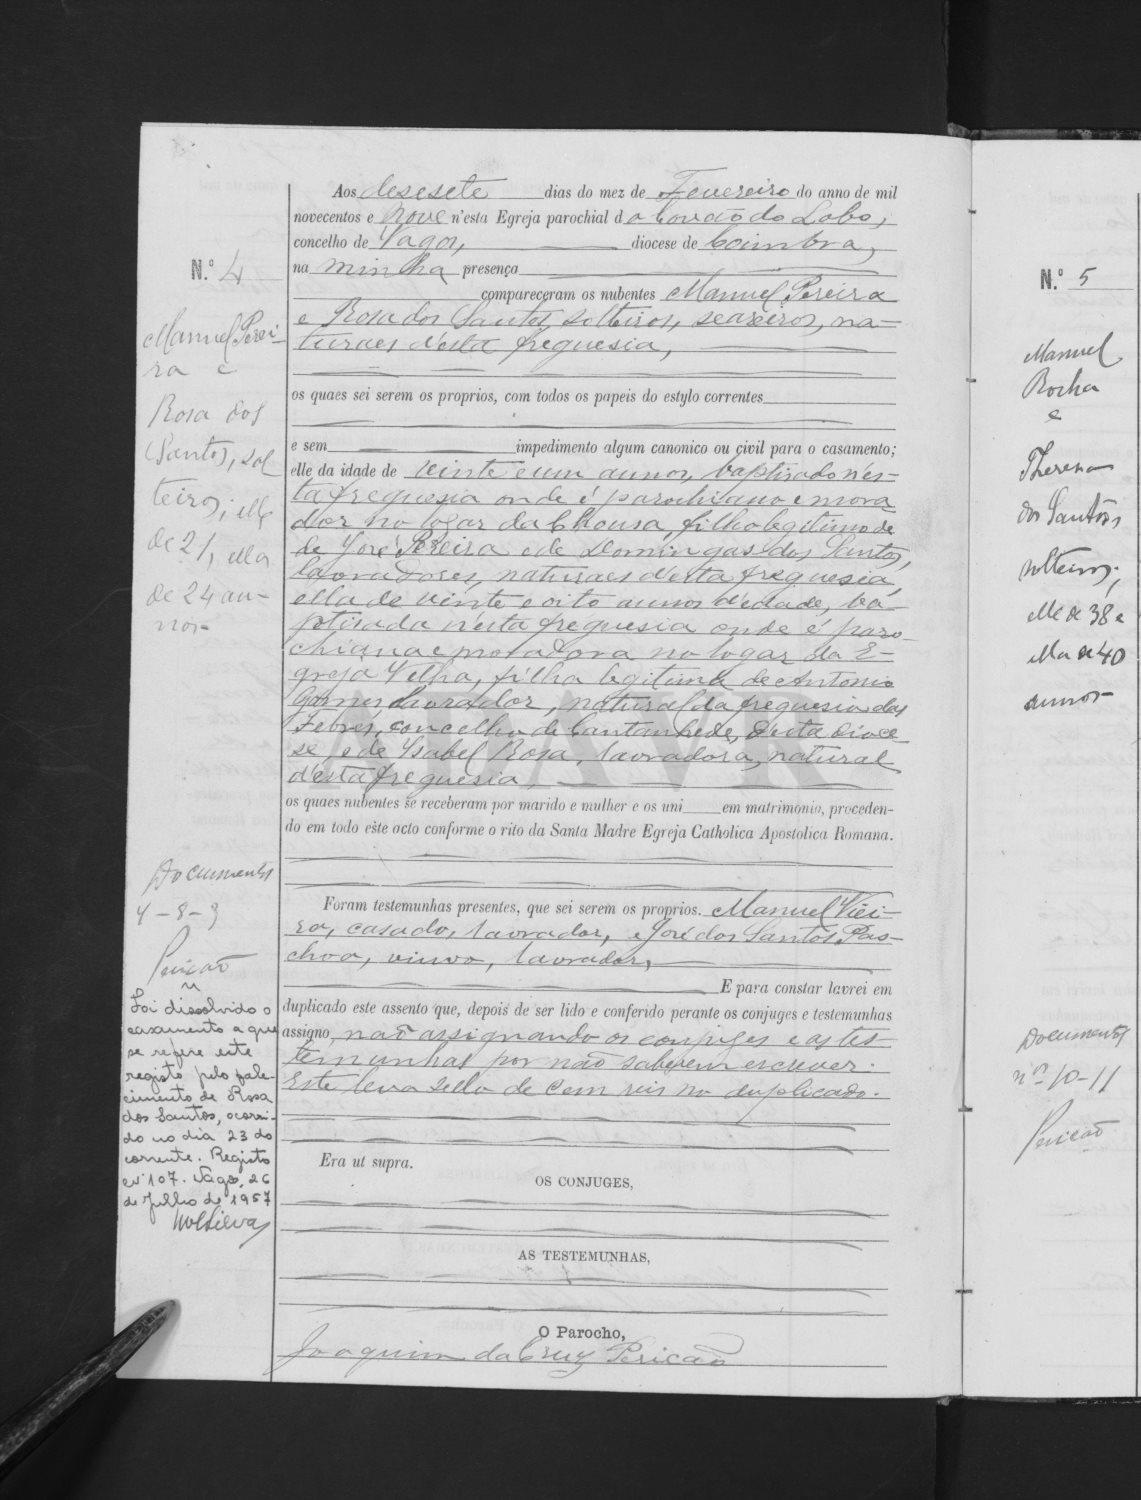 N.º 4
Manuel Perei-
ra e
Rosa dos
Santos, sol
teiros; elle
de 21, ella
de 24 an-
nos-
Documentos
4-8-9
Pericão
Foi dissolvido o
casamento a que
se refere este
registo pelo fale-
cimento de Rosa
dos Santos, ocorri-
do no dia 23 do
corrente. Registo
nº 107. Vagos, 26
de Julho de 1957
Aos desesete dias do mez de Fevereiro do anno de mil
novecentos e nove n'esta Egreja parochial do Covão do Lobo,
concelho de Vagos, diocese de Coimbra,
na minha presença
compareceram os nubentes Manuel Pereira
e Rosa dos Santos, solteiros, seareiros, na-
turaes d'esta freguesia,
os quaes sei serem os proprios, com todos os papeis do estylo correntes
e sem impedimento algum canonico ou civil para o casamento;
elle da idade de vinte e um annos, baptisado n'es-
ta freguesia onde é parochiano e mora
dor no logar da Chousa, filho legitimo de
de José Pereira e de Domingas dos Santos,
lavradores, naturaes d'esta freguesia,
ella de vinte e oito annos d'edade, ba-
ptisada n'esta freguesia onde é paro-
chiana e moradora no logar da E-
greja Velha, filha legitima de Antonio
Gomes, lavrador, natural da freguesia das
Febres, concelho de Cantanhede, d'esta dioce
se e de Isabel Rosa, lavradora, natural
d'esta freguesia,
os quaes nubentes se receberam por marido e mulher e os uni em matrimonio, proceden-
do em todo este acto conforme o rito da Santa Madre Egreja Catholica Apostolica Romana.
Foram testemunhas presentes, que sei serem os proprios. Manuel Viei-
ra, casado, lavrador, e José dos Santos Pas-
choa, viuvo, lavrador,
E para constar lavrei em
duplicado este assento que, depois de ser lido e conferido perante os conjuges e testemunhas
assigno, não assignando os conjuges e as tes-
temunhas por não saberem escrever.
Este leva sello de cem reis no duplicado.
Era ut supra.
OS CONJUGES,
AS TESTEMUNHAS,
O Parocho,
Joaquim da Cruz Pericão
ADAVR
N.º 5
Manuel
Rocha
e
Thereza
dos Santos
solteiros;
elle de 38 e
ella de 40
annos-
Documentos
nos 10-11
Pericão